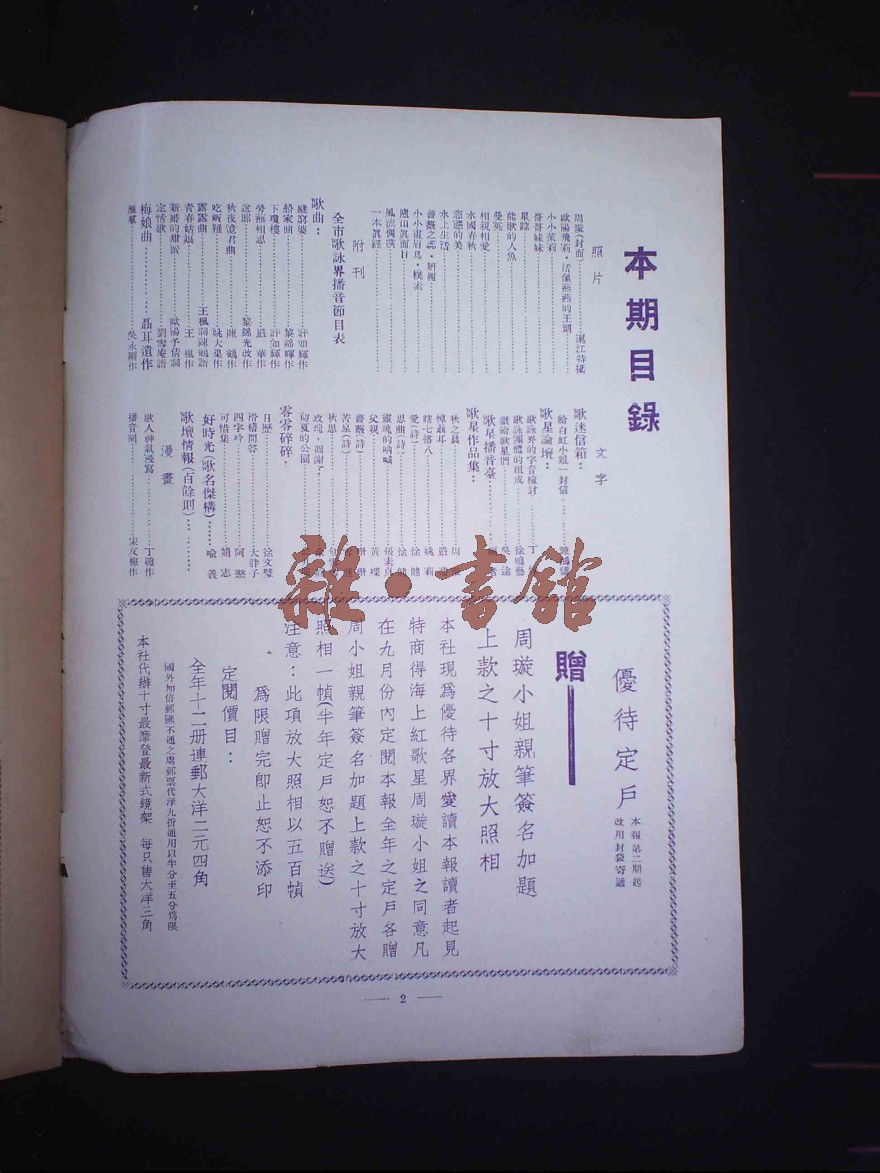 本期目錄
照片
周璇(封面)……………滬江特攝
歐陽飛莉・活潑燕燕的王頭……
小小茉莉……
哥哥妹妹……
星踪……
能歌的人魚……
曼英……
相親相愛……
永國春秋……
恣邁的美……
水上生活……
薔薇之鄰・妍麗……
小小畫眉鳥・樸素……
廬山眞面目……
風流偶儷……
一本眞經……
附刊
全市歌詠界播音節目表
歌曲：
縫窮婆……許如輝作
船家曲……黎錦暉作
下瓊樓……許如輝作
勞燕相思……嚴華作
送郎……黎錦光改作
秋夜憶君曲……陳鶴作
吃飯難……姚大巢作
露露曲……王楓詞陳鶴譜
青春姑娘……王楓作
新婚的甜蜜……歐陽予倩詞
定情歌……劉雪庵譜
梅娘曲……聶耳遺作
雁羣……吳永剛作
文字
歌迷信箱：
給白虹小姐一封信……
歌星論壇：
歌詠界的字音檢討……丁
歌詠團體的組成……徐鳴藝
獻給歌星們……吳逾
歌星播音臺……
歌星作品集：
秋之晨……周
悼聶耳……嚴
瞎七搭八……姚莉
愛(詩)……徐健
思曲(詩)……徐健
靈魂的吶喊……張素貞
父親……黃喋
薔薇(詩)……
苦泉(詩)……
秋思……
玫瑰，凋謝了……
初夏的公園……
零零碎碎．
日歷……徐文璧
滑稽問答……大胖子
四字吟……阿憨
可惜集……娟志
好時光(歌名傑構)……喩義
歌壇情報(百餘則)……
漫畫
歌人神氣漫寫……丁聰作
播音園……宋友梅作
優待定戶
本報第二期起
改用封袋寄遞
贈
周璇小姐親筆簽名加題
上款之十寸放大照相
本社現爲優待各界愛讀本報讀者起見
特商得海上紅歌星周璇小姐之同意凡
在九月份內定閱本報全年之定戶各贈
周小姐親筆簽名加題上款之十寸放大
照相一幀(半年定戶恕不贈送)
注意：此項放大照相以五百幀
爲限贈完卽止恕不添印
定閱價目：
全年十二册連郵大洋二元四角
國外加倍郵匯不通之處郵票代洋九折通用以半分至五分爲限
本社代辦十寸最摩登最新式鏡架 每只售大洋三角
2
雜・書館